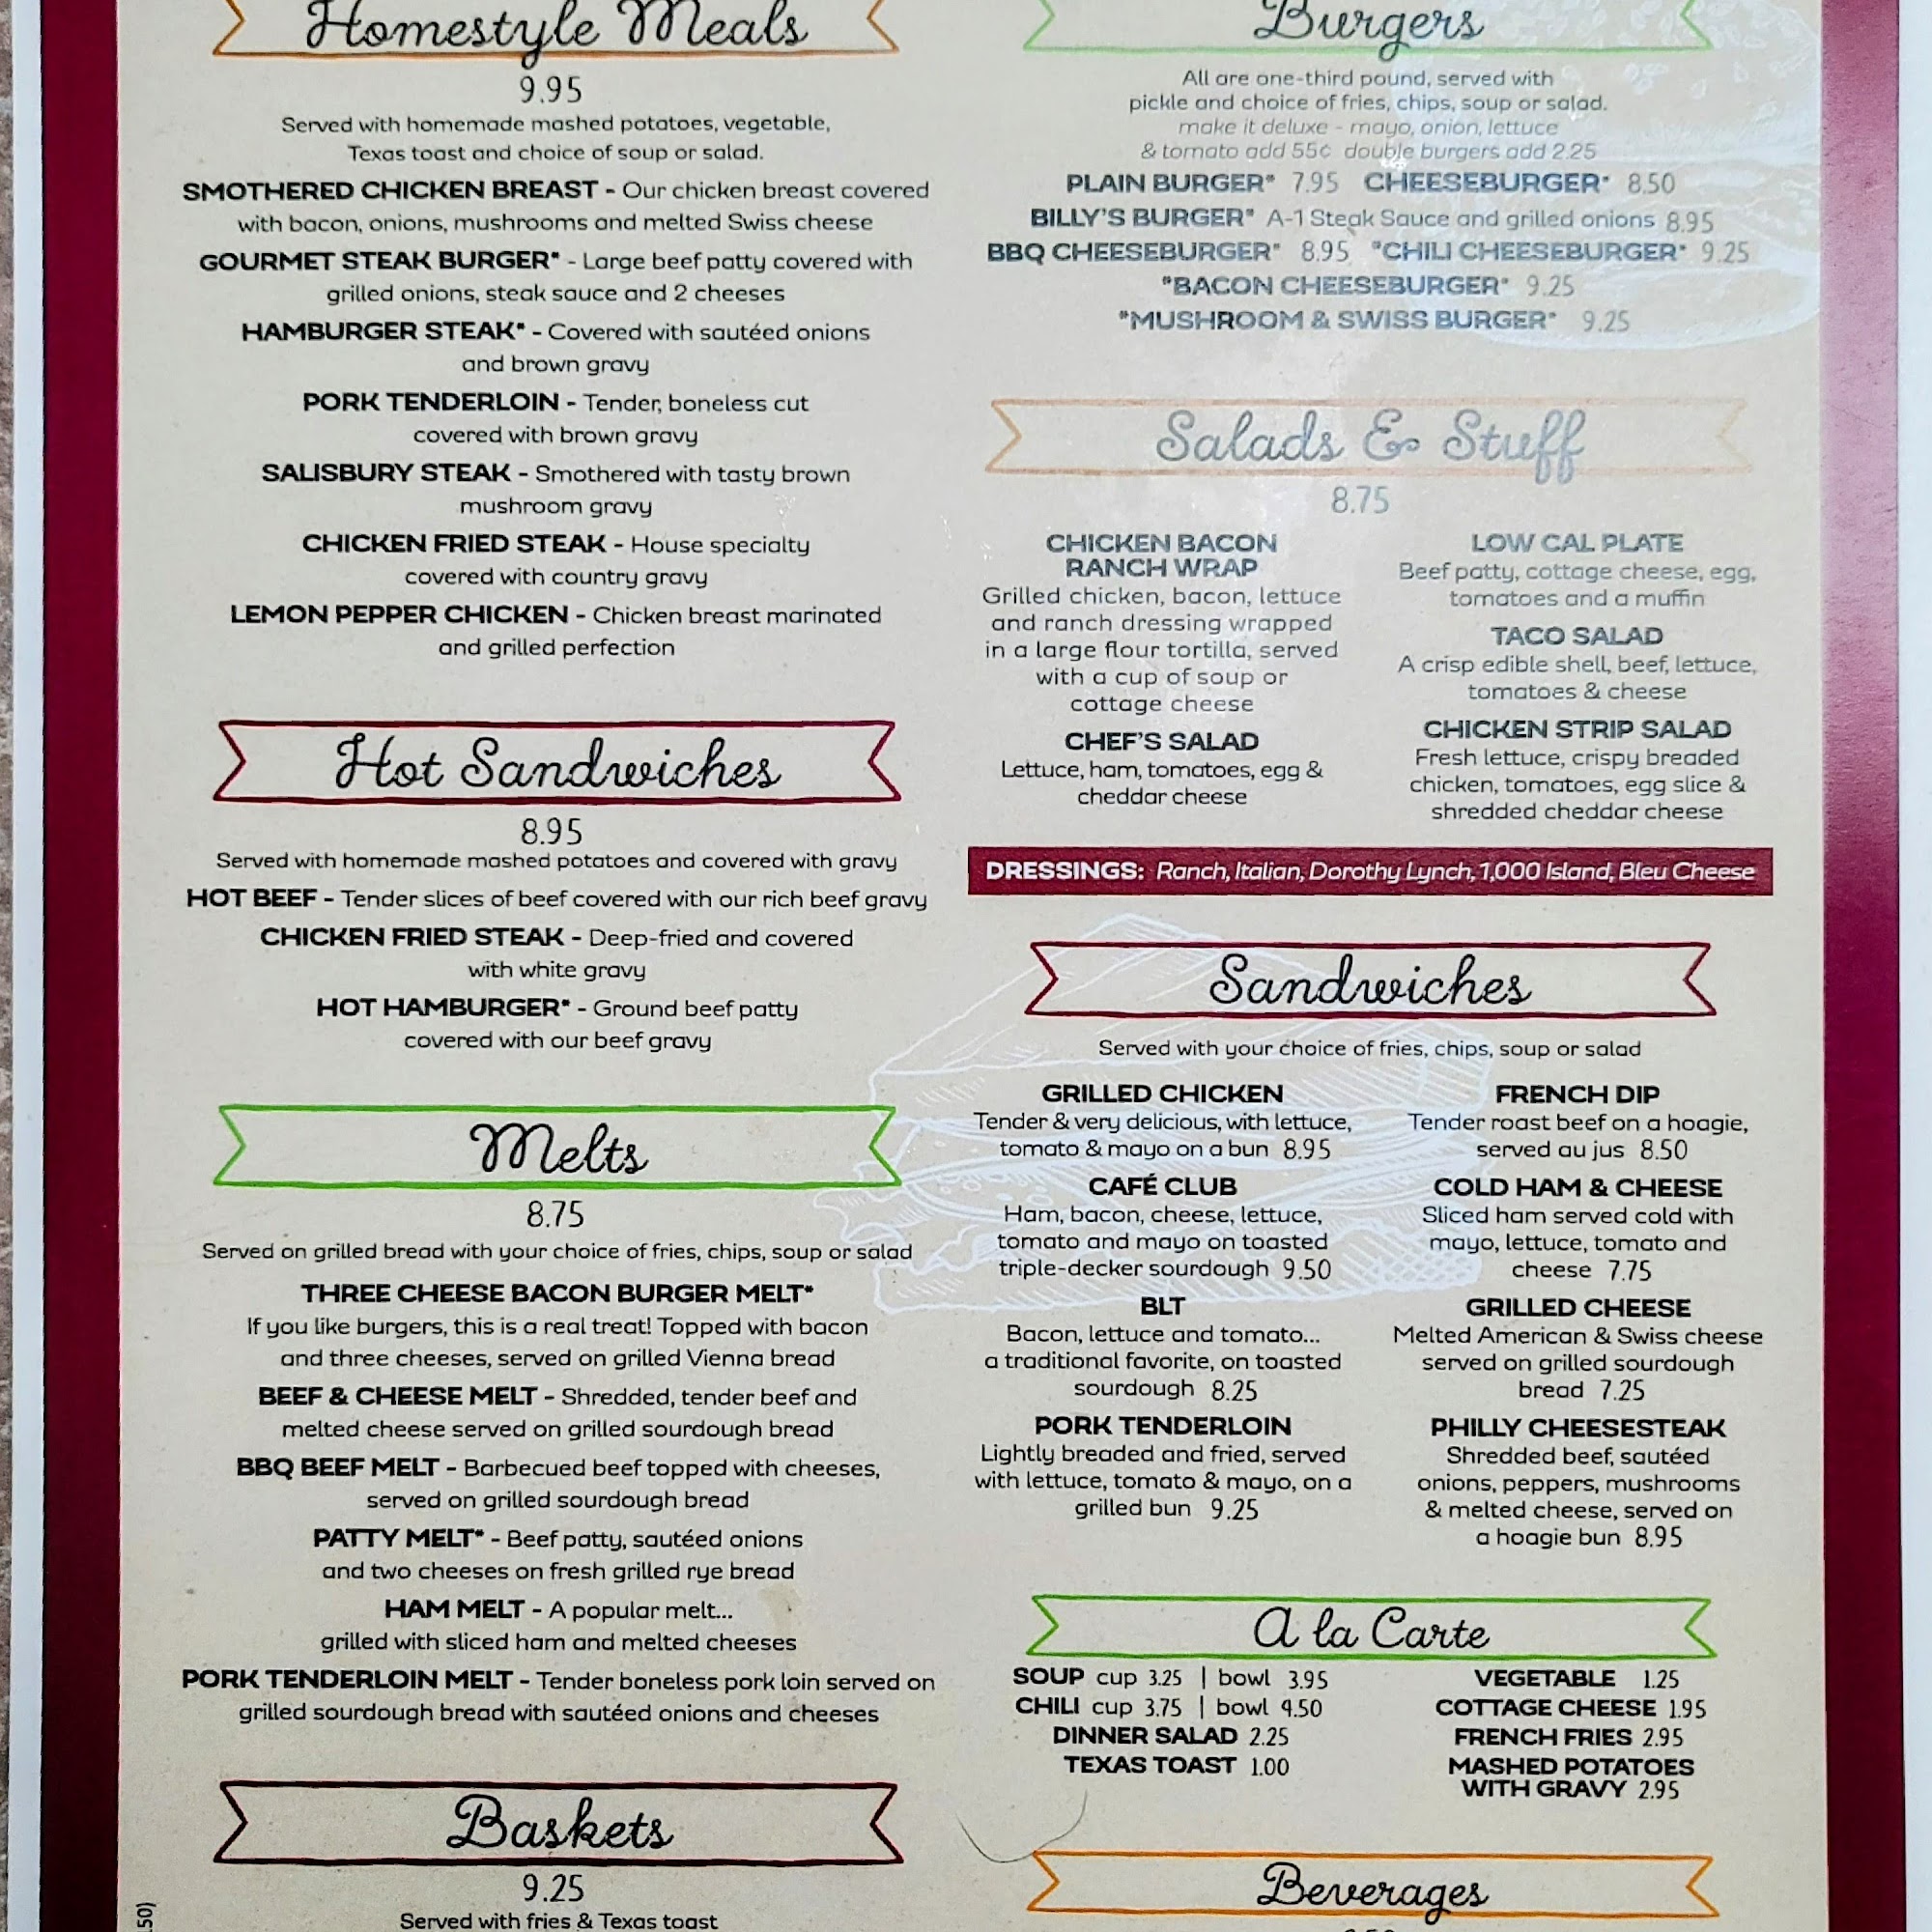 Homestyle Meals
9.95
Served with homemade mashed potatoes, vegetable,
Texas toast and choice of soup or salad.
SMOTHERED CHICKEN BREAST - Our chicken breast covered
with bacon, onions, mushrooms and melted Swiss cheese
GOURMET STEAK BURGER* - Large beef patty covered with
grilled onions, steak sauce and 2 cheeses
HAMBURGER STEAK* - Covered with sautéed onions
and brown gravy
PORK TENDERLOIN - Tender, boneless cut
covered with brown gravy
SALISBURY STEAK - Smothered with tasty brown
mushroom gravy
CHICKEN FRIED STEAK - House specialty
covered with country gravy
LEMON PEPPER CHICKEN - Chicken breast marinated
and grilled perfection
Hot Sandwiches
8.95
Served with homemade mashed potatoes and covered with gravy
HOT BEEF - Tender slices of beef covered with our rich beef gravy
CHICKEN FRIED STEAK - Deep-fried and covered
with white gravy
HOT HAMBURGER* - Ground beef patty
covered with our beef gravy
Melts
8.75
Served on grilled bread with your choice of fries, chips, soup or salad
THREE CHEESE BACON BURGER MELT*
If you like burgers, this is a real treat! Topped with bacon
and three cheeses, served on grilled Vienna bread
BEEF & CHEESE MELT - Shredded, tender beef and
melted cheese served on grilled sourdough bread
BBQ BEEF MELT - Barbecued beef topped with cheeses,
served on grilled sourdough bread
PATTY MELT* - Beef patty, sautéed onions
and two cheeses on fresh grilled rye bread
HAM MELT - A popular melt...
grilled with sliced ham and melted cheeses
PORK TENDERLOIN MELT - Tender boneless pork loin served on
grilled sourdough bread with sautéed onions and cheeses
Baskets
9.25
Served with fries & Texas toast
Burgers
All are one-third pound, served with
pickle and choice of fries, chips, soup or salad.
make it deluxe - mayo, onion, lettuce
& tomato add 55¢ double burgers add 2.25
PLAIN BURGER* 7.95 CHEESEBURGER* 8.50
BILLY'S BURGER* A-1 Steak Sauce and grilled onions 8.95
BBQ CHEESEBURGER* 8.95 *CHILI CHEESEBURGER* 9.25
*BACON CHEESEBURGER* 9.25
*MUSHROOM & SWISS BURGER* 9.25
Salads & Stuff
8.75
CHICKEN BACON
RANCH WRAP
Grilled chicken, bacon, lettuce
and ranch dressing wrapped
in a large flour tortilla, served
with a cup of soup or
cottage cheese
CHEF'S SALAD
Lettuce, ham, tomatoes, egg &
cheddar cheese
LOW CAL PLATE
Beef patty, cottage cheese, egg,
tomatoes and a muffin
TACO SALAD
A crisp edible shell, beef, lettuce,
tomatoes & cheese
CHICKEN STRIP SALAD
Fresh lettuce, crispy breaded
chicken, tomatoes, egg slice &
shredded cheddar cheese
DRESSINGS: Ranch, Italian, Dorothy Lynch, 1,000 Island, Bleu Cheese
Sandwiches
Served with your choice of fries, chips, soup or salad
GRILLED CHICKEN
Tender & very delicious, with lettuce,
tomato & mayo on a bun 8.95
CAFÉ CLUB
Ham, bacon, cheese, lettuce,
tomato and mayo on toasted
triple-decker sourdough 9.50
BLT
Bacon, lettuce and tomato...
a traditional favorite, on toasted
sourdough 8.25
PORK TENDERLOIN
Lightly breaded and fried, served
with lettuce, tomato & mayo, on a
grilled bun 9.25
FRENCH DIP
Tender roast beef on a hoagie,
served au jus 8.50
COLD HAM & CHEESE
Sliced ham served cold with
mayo, lettuce, tomato and
cheese 7.75
GRILLED CHEESE
Melted American & Swiss cheese
served on grilled sourdough
bread 7.25
PHILLY CHEESESTEAK
Shredded beef, sautéed
onions, peppers, mushrooms
& melted cheese, served on
a hoagie bun 8.95
A la Carte
SOUP cup 3.25 | bowl 3.95
CHILI cup 3.75 | bowl 4.50
DINNER SALAD 2.25
TEXAS TOAST 1.00
VEGETABLE 1.25
COTTAGE CHEESE 1.95
FRENCH FRIES 2.95
MASHED POTATOES
WITH GRAVY 2.95
Beverages